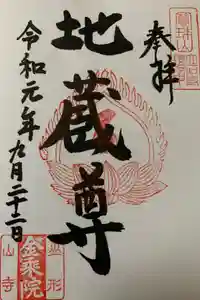 奉拝
地蔵尊
令和元年九月二十二日
山形
山寺
金乗院